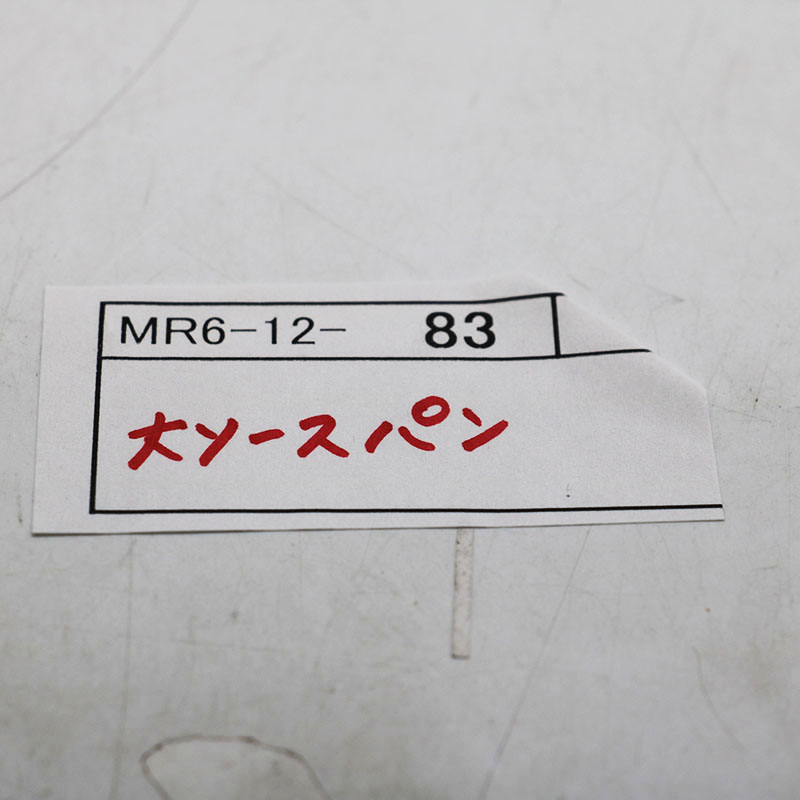 MR6-12- 83
大ソースパン